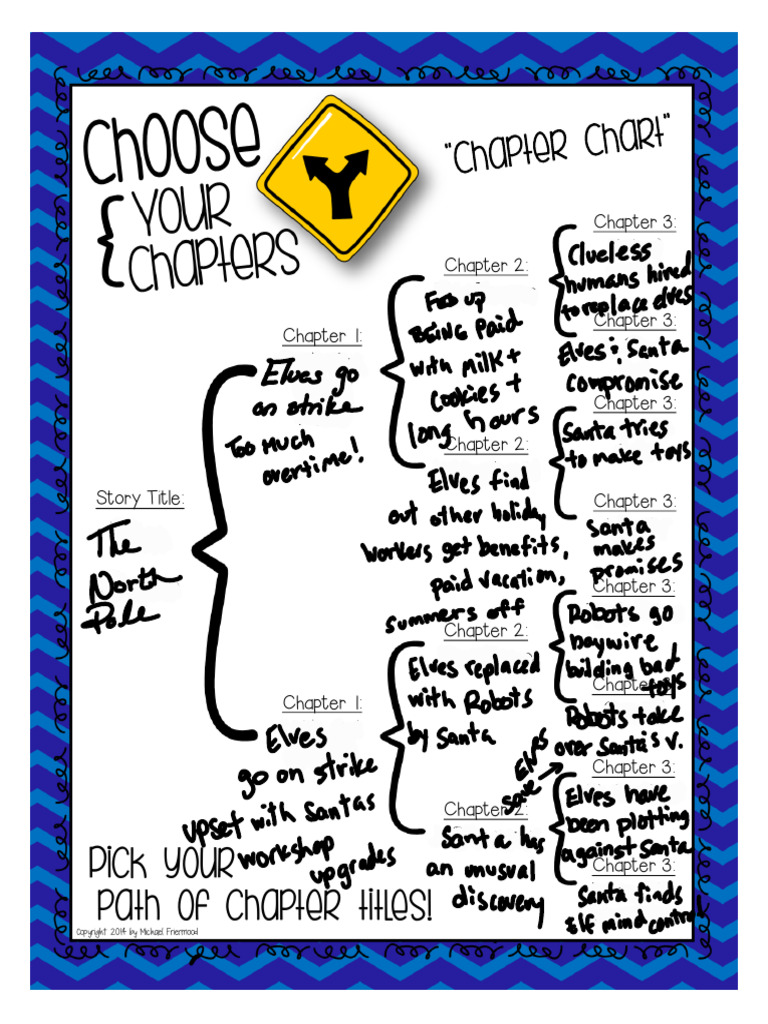 Choose
Your
Chapters
"Chapter Chart"
Story Title:
The
North
Pole
Chapter 1:
Elves go
on strike
Too much
overtime!
Chapter 1:
Elves
go on strike
upset with Santas
workshop
upgrades
Chapter 2:
Fed up
BEING Paid
with milk +
cookies +
long hours
Chapter 2:
Elves find
out other holiday
workers get benefits,
paid vacation,
summers off
Chapter 2:
Elves replaced
with Robots
by Santa
Chapter 2:
Santa has
an unusual
discovery
Chapter 3:
Clueless
humans hired
to replace elves
Chapter 3:
Elves & Santa
compromise
Chapter 3:
Santa tries
to make toys
Chapter 3:
Santa
makes
promises
Chapter 3:
Robots go
haywire
building bad
toys
Chapter 3:
Robots take
over Santa's v.
Elves
save
Chapter 3:
Elves have
been plotting
against Santa
Chapter 3:
Santa finds
Elf mind control
Pick your
path of chapter titles!
Copyright 2014 by Michael Friermood